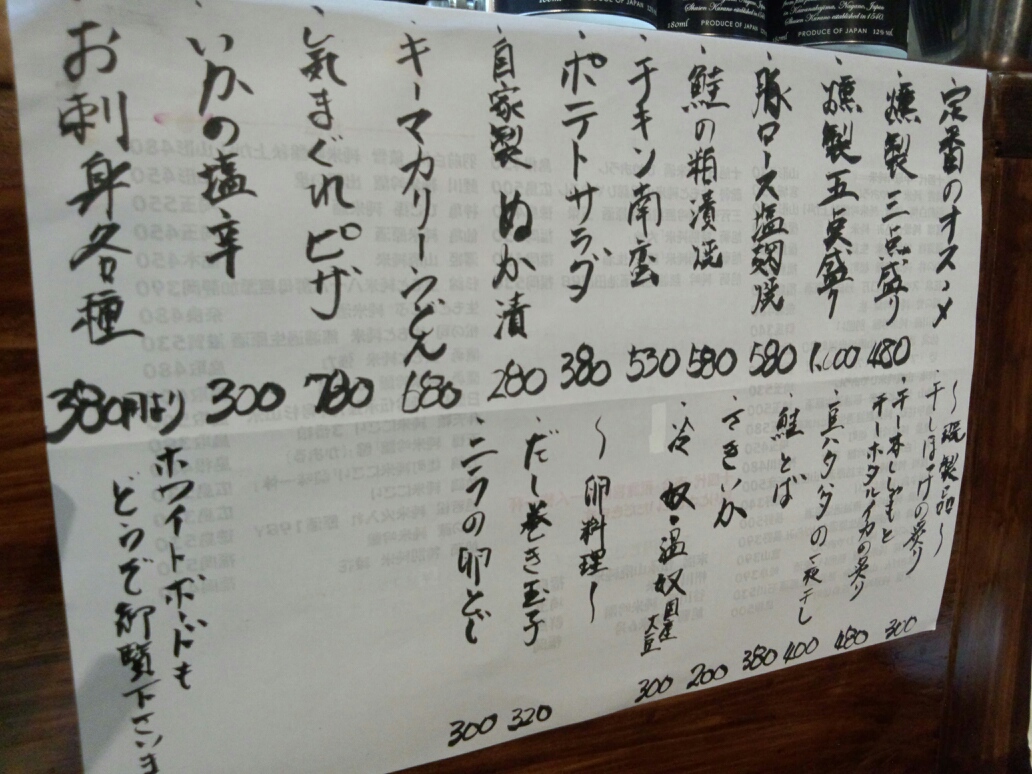 定番のオススメ
・燻製三点盛り 480
・燻製五点盛り 1,000
・豚ロース塩麹焼 580
・鮭の粕漬焼 580
・チキン南蛮 530
・ポテトサラダ 380
・自家製ぬか漬 280
・キーマカリーうどん 680
・気まぐれピザ 780
・いかの塩辛 300
・お刺身各種 380円より
・干しほっけの炙り 300
・干一本ししゃもと
干しホタルイカの炙り 480
・豆ハタハタの一夜干し 400
・鮭とば 380
・さきいか 200
・冷奴・温奴 国産大豆 300
〜卵料理〜
・だし巻き玉子 320
・ニラの卵とじ 300
ホワイトボードも
どうぞ御覧下さいませ
PRODUCE OF JAPAN
180ml PRODUCE OF JAPAN 12%